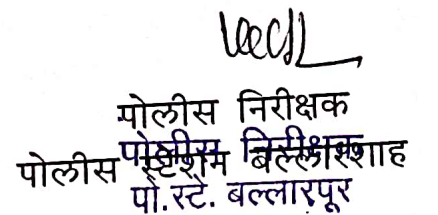 पोलीस निरीक्षक
पोलीस निरीक्षक
पोलीस स्टेशन बल्लारशाह
पो.स्टे. बल्लारपूर